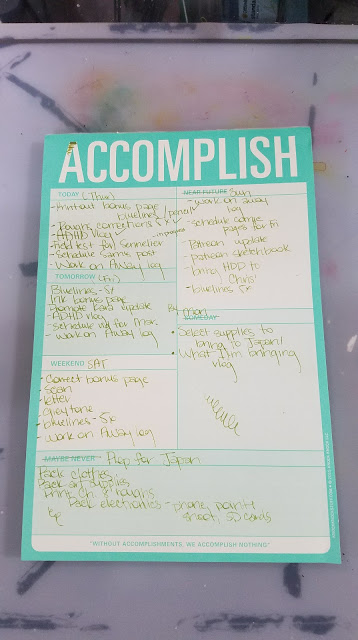 ACCOMPLISH
TODAY (Thur)
- Printout bonus page
bluelines/pencil
- Roughs corrections 5x ✓
- ADHD Vlog - in progress
- Field test for Sennelier
- Schedule same post
- Work on Away log
TOMORROW (Fri)
Bluelines - 5x
Ink bonus page
Promote Kara update
ADHD vlog
- Schedule vid for Mon.
- Work on Away log
WEEKEND SAT
- Correct bonus page
- Scan
- letter
- greytone
- bluelines - 5x
- work on Away log
NEAR FUTURE Sun
- work on away
log
- Schedule comic
pages for Fri
- Patreon update
- patreon sketchbook
- bring HDD to
Chris'
- bluelines 5x
By Mon
SOMEDAY
- Select supplies to
bring to Japan/
What I'm bringing
vlog
MAYBE NEVER - Prep for Japan
Pack clothes
Pack art supplies
Print Ch. 8 roughs
Pack electronics - phone, point &
shoot, SD cards
"WITHOUT ACCOMPLISHMENTS, WE ACCOMPLISH NOTHING"